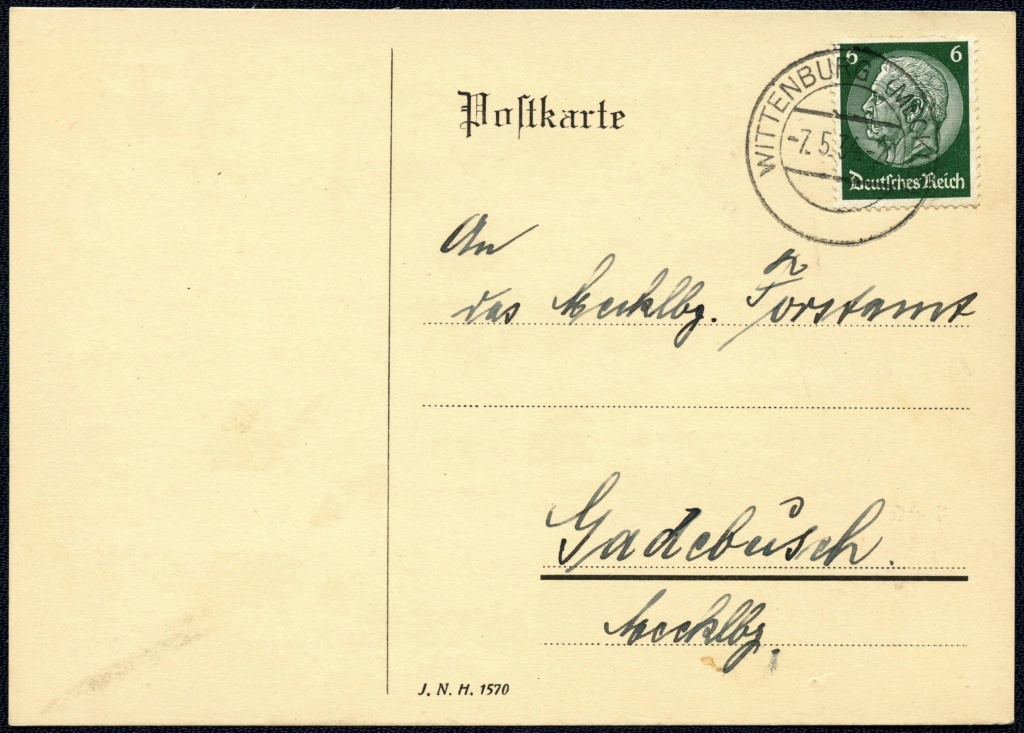 Postkarte
WITTENBURG (MECKL)
-7.5.3
6 6
Deutsches Reich
An
das Mecklbg. Forstamt
Gadebusch.
Mecklbg.
J. N. H. 1570